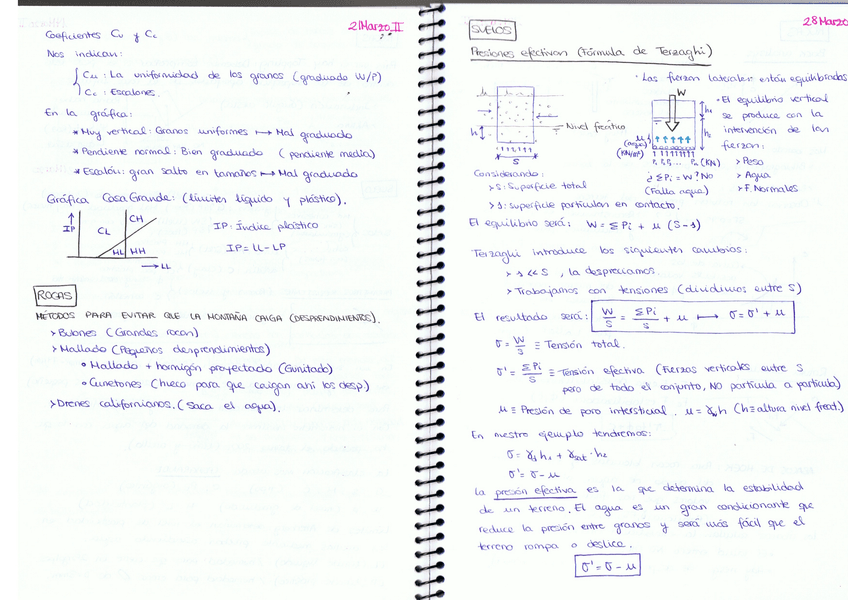 21 Marzo II
Coeficientes Cu y Cc
Nos indican:
Cu: La uniformidad de los granos (graduado W/P)
Cc: Escalones.
En la gráfica:
* Muy vertical: Granos uniformes ↦ Mal graduado
* Pendiente normal: Bien graduado (pendiente media)
* Escalón: gran salto en tamaños ↦ Mal graduado
Gráfica Casa Grande: (límites líquido y plástico).
IP
CH
CL
HL
HH
LL
IP: Índice plástico
IP = LL - LP
ROCAS
MÉTODOS PARA EVITAR QUE LA MONTAÑA CAIGA (DESPRENDIMIENTOS).
> Bulones (Grandes rocas)
> Mallado (Pequeños desprendimientos)
o Mallado + hormigón proyectado (Gunitado)
o Cunetones (hueco para que caigan ahí los desp)
> Drenes californianos. (Saca el agua).
28 Marzo
SUELOS
Presiones efectivas (Fórmula de Terzaghi)
· Las fuerzas laterales están equilibradas
h
Nivel freático
S
W
h₁
h₂
μ
(agua)
(KN/m²)
P₁ P₂ P₃ ... Pi (KN)
¿ΣPi = W? No
(Falla agua)
· El equilibrio vertical
se produce con la
intervención de las
fuerzas:
> Peso
> Agua
> F. Normales
Considerando:
> S: Superficie total
> s: superficie partículas en contacto.
El equilibrio será: W = ΣPi + μ (S-s)
Terzaghi introduce los siguientes cambios:
> s << S, la despreciamos.
> Trabajamos con tensiones (dividimos entre S)
El resultado será: W/S = ΣPi/S + μ ↦ σ = σ' + μ
σ = W/S ≡ Tensión total.
σ' = ΣPi/S ≡ Tensión efectiva (Fuerzas verticales entre S
pero de todo el conjunto, NO partícula a partícula)
μ ≡ Presión de poro intersticial. μ = γw h (h ≡ altura nivel freat.)
En nuestro ejemplo tendremos:
σ = γd h₁ + γsat · h₂
σ' = σ - μ
La presión efectiva es la que determina la estabilidad
de un terreno. El agua es un gran condicionante que
reduce la presión entre granos y será más fácil que el
terreno rompa o deslice.
σ' = σ - μ